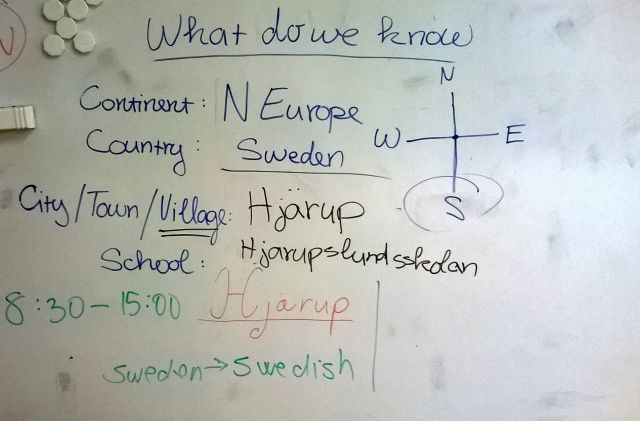 What do we know
N
Continent: N Europe
W E
Country: Sweden
S
City/Town/Village: Hjärup
School: Hjarupslundsskolan
8:30-15:00 Hjärup
Sweden→Swedish